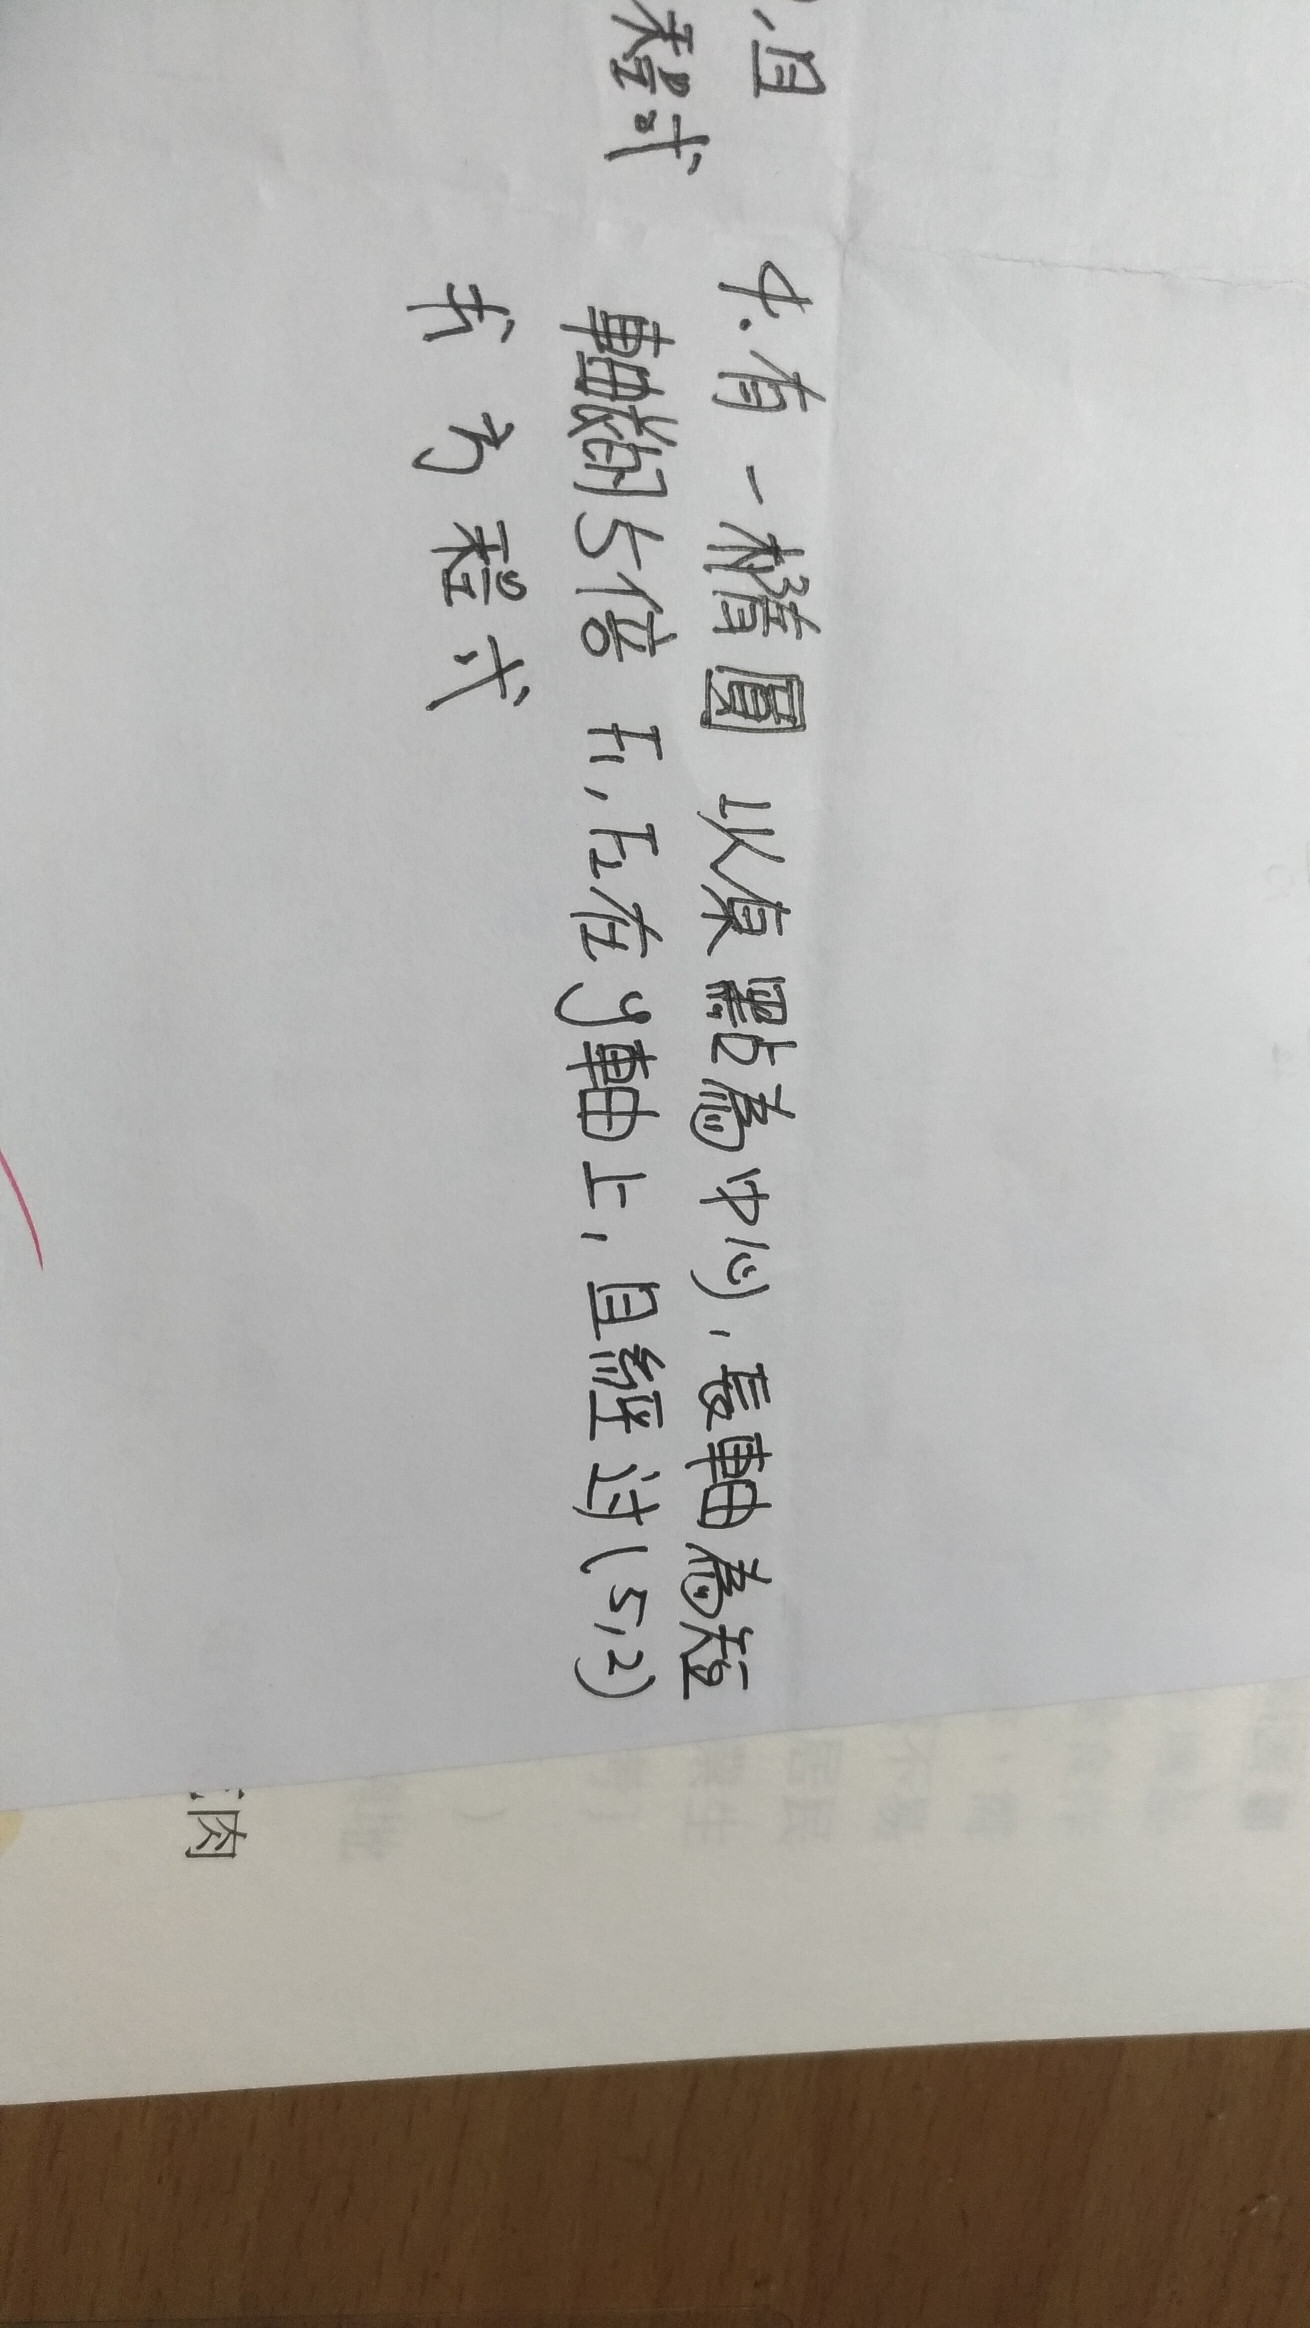 ,且
程式
4.有一橢圓 以原點為中心,長軸為短
軸的5倍 F1,F2在y軸上,且經过(5,2)
求方程式
肉